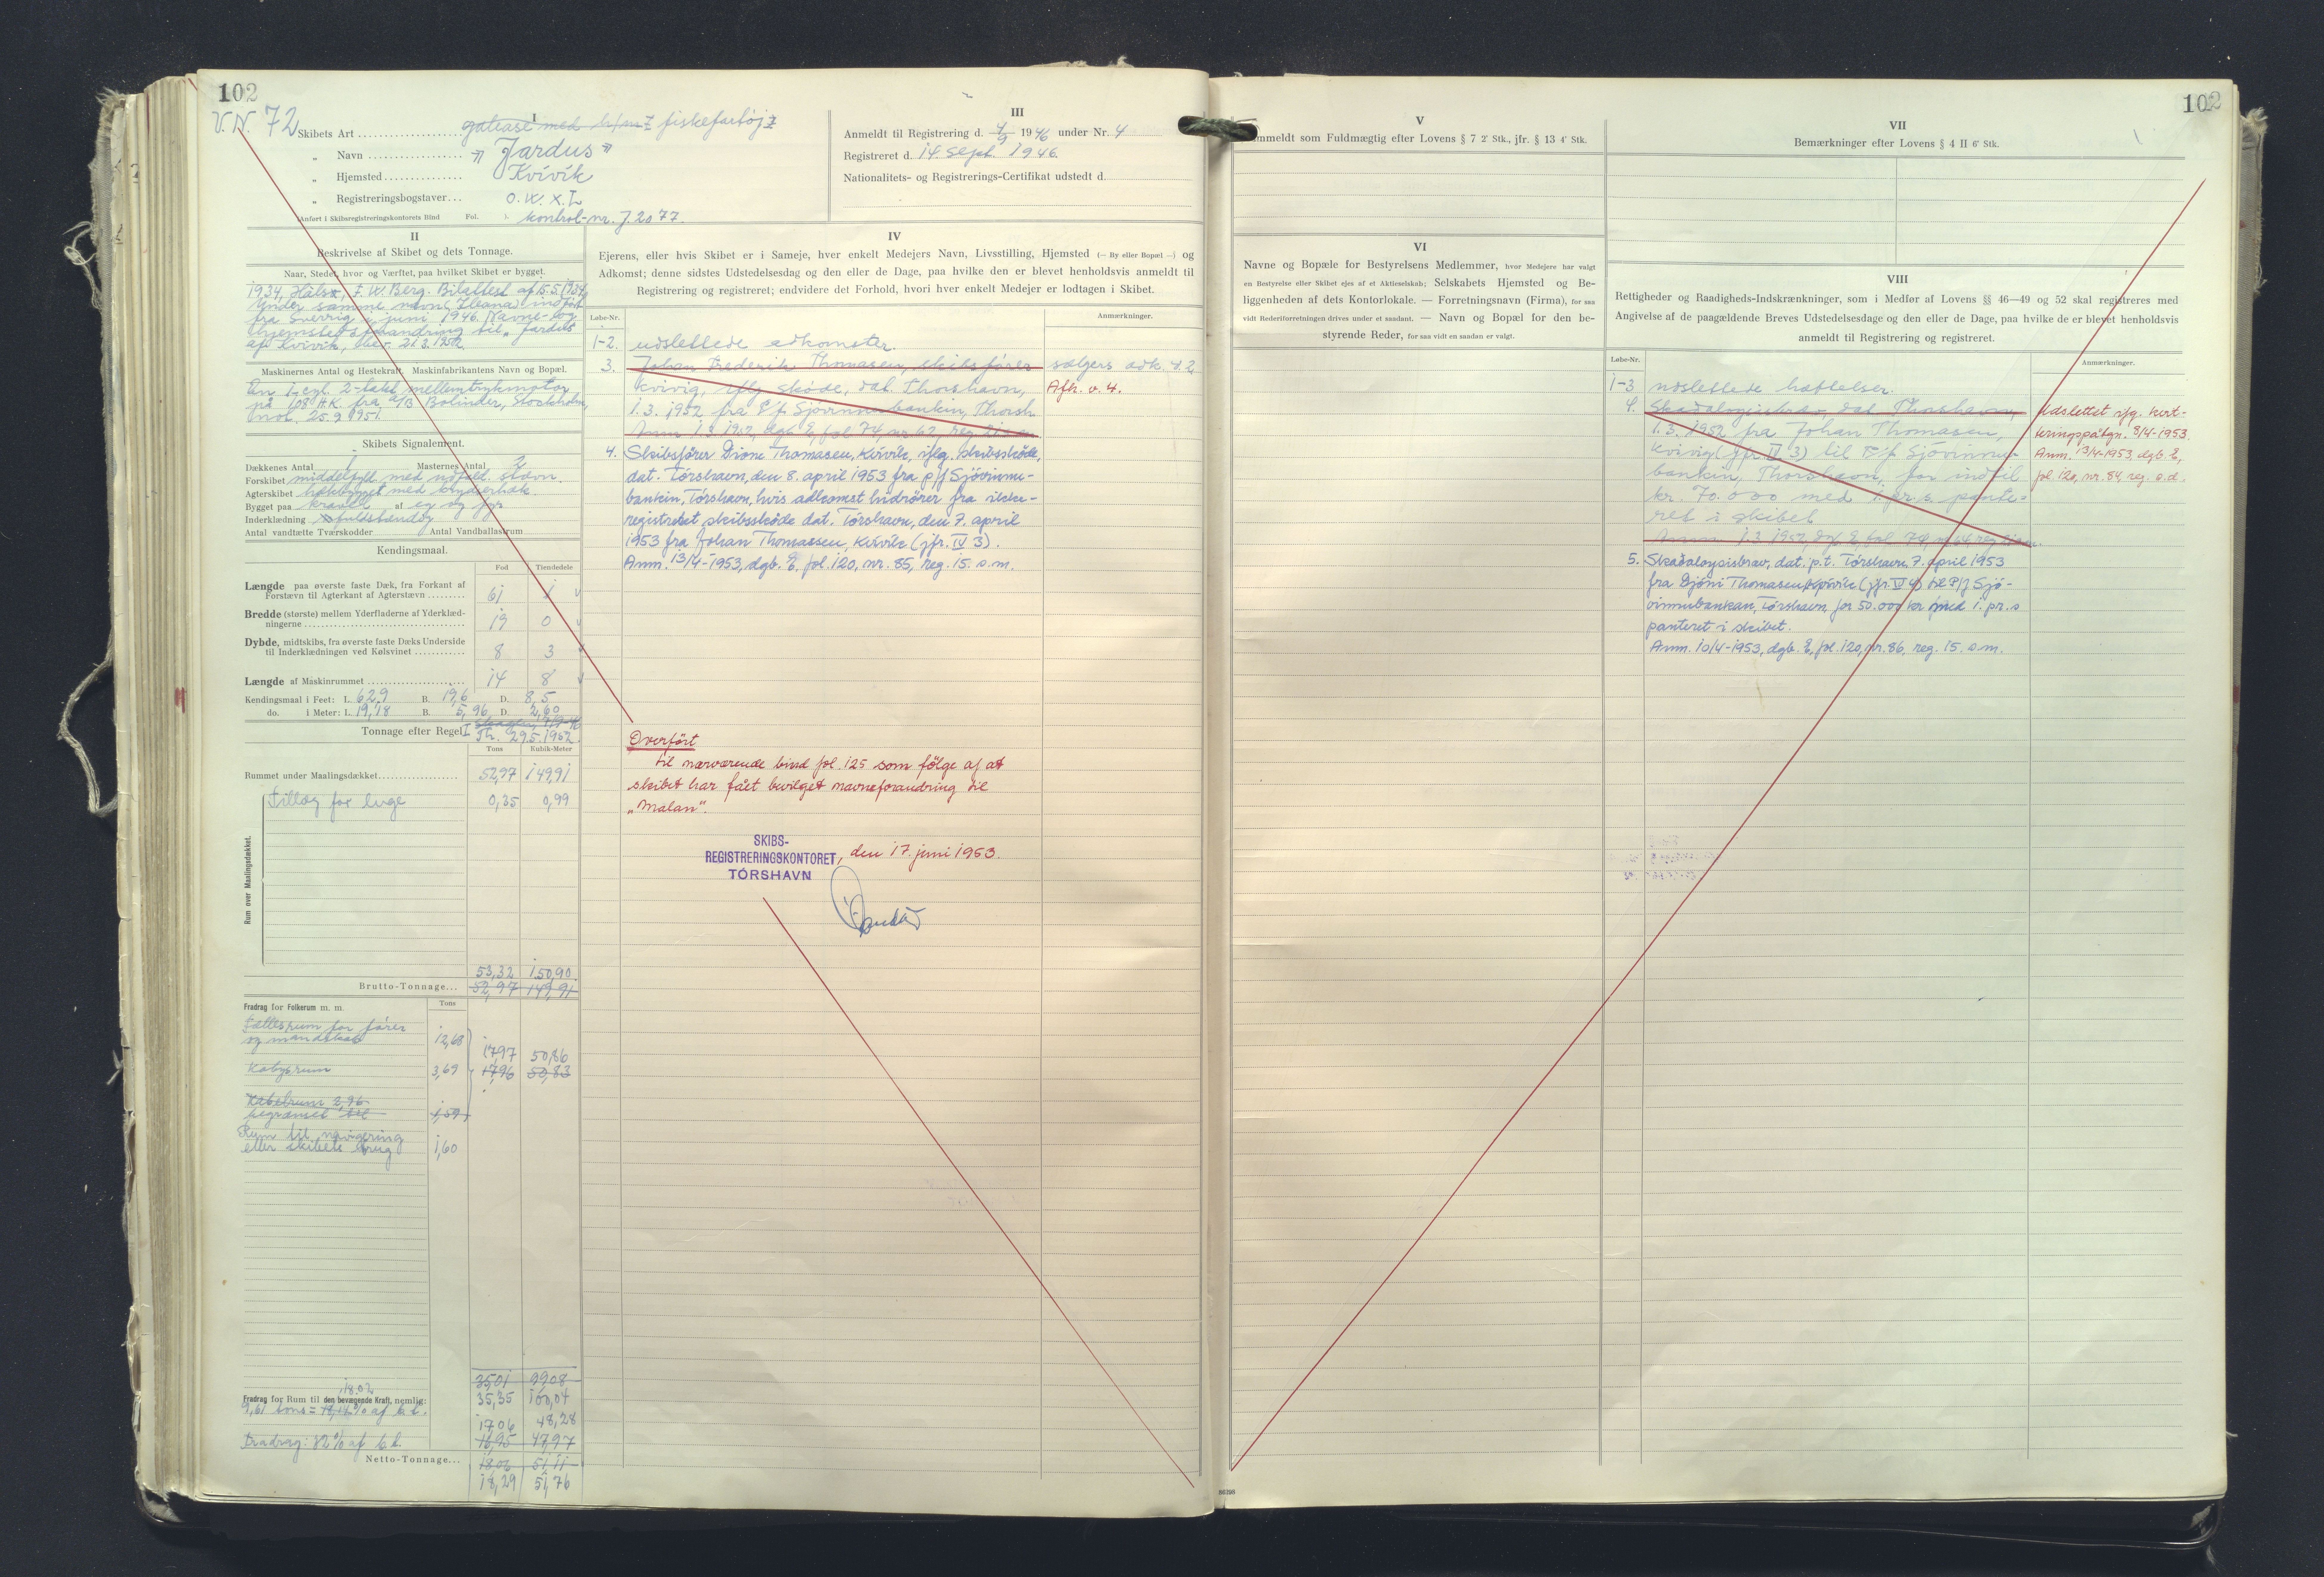 102
V. N. 72
I
Skibets Art galease med hj/m fiskefartøj
„ Navn "Jardus"
„ Hjemsted Kvivík
„ Registreringsbogstaver O.W.X.L
(Anført i Skibsregistreringskontorets Bind Fol. ). kontrol-nr. J. 2077.
III
Anmeldt til Registrering d. 4/9 1946 under Nr. 4
Registreret d. 14. sept. 1946.
Nationalitets- og Registrerings-Certifikat udstedt d.
II
Beskrivelse af Skibet og dets Tonnage.
Naar, Stedet, hvor og Værftet, paa hvilket Skibet er bygget.
1934, F. W. Berg. Bilattest af 5.5.1934
under samme navn (Ileana) indført
fra Sverrig i juni 1946. Navne- og
hjemstedsforandring til "Jardus"
af Kvivik, 21.3.1952.
Maskinernes Antal og Hestekraft, Maskinfabrikantens Navn og Bopæl.
En 1-cyl. 2-takt mellemtryksmotor
på 108 H.K. fra A/B Bolinder, Stockholm,
25.9.1951.
Skibets Signalement.
Dækkenes Antal 1 Masternes Antal 2
Forskibet middelfyld. med udfald. stævn.
Agterskibet hækbygget med krydserhæk.
Bygget paa kravel af eg og fyr
Inderklædning fuldstændig
Antal vandtætte Tværskodder Antal Vandballastrum
Kendingsmaal.
Fod Tiendedele
Længde paa øverste faste Dæk, fra Forkant af
Forstævn til Agterkant af Agterstævn 61 1
Bredde (største) mellem Yderfladerne af Yderklæd-
ningerne 19 0
Dybde, midtskibs, fra øverste faste Dæks Underside
til Inderklædningen ved Kølsvinet 8 3
Længde af Maskinrummet 14 8
Kendingsmaal i Feet: L. 62,9 B. 19,6 D. 8,5
do. i Meter: L. 19,18 B. 5,96 D. 2,60
Tonnage efter Regel I
Th. 29.5.1952.
Tons Kubik-Meter
Rummet under Maalingsdækket 52,97 149,91
Rum over Maalingsdækket.
Tillæg for luge 0,35 0,99
53,32 150,90
Brutto-Tonnage 52,97 149,91
Fradrag for Folkerum m. m.
Tons
Fællesrum for fører
og mandskab 12,68
17,97 50,86
Kabysrum 3,69 17,96 50,83
Kabelrum 2,96
begrænset til 1,59
Rum til navigering
eller skibets brug 1,60
35,01 99,08
18.02
Fradrag for Rum til den bevægende Kraft, nemlig: 35,35 100,04
9,61 tons = 18,14% af b.t.
17,06 48,28
Fradrag: 32% af b.t. 16,95 47,97
Netto-Tonnage 18,06 51,11
18,29 51,76
IV
Ejerens, eller hvis Skibet er i Sameje, hver enkelt Medejers Navn, Livsstilling, Hjemsted (— By eller Bopæl —) og
Adkomst; denne sidstes Udstedelsesdag og den eller de Dage, paa hvilke den er blevet henholdsvis anmeldt til
Registrering og registreret; endvidere det Forhold, hvori hver enkelt Medejer er lodtagen i Skibet.
Løbe-Nr. Anmærkninger.
1-2. udslettede adkomster.
3. Johan Frederik Thomasen, skibsfører sælgers adk. 4.2
Kvivig, iflg skøde, dat. Thorshavn, Afh. v. 4.
1.3. 1952 fra P/f Sjóvinnubankin, Thorsh.
Anm. 1.3.1952, dgb. E, fol. 74, nr. 62, reg.
4. Skibsfører Dione Thomasen, Kvivík, iflg. skibsskøde,
dat. Tórshavn, den 8. april 1953 fra p/f Sjóvinnu-
bankin, Tórshavn, hvis adkomst hidrører fra ikke-
registreret skibsskøde dat. Tórshavn, den 7. april
1953 fra Johan Thomassen, Kvívík (jfr. IV 3).
Anm. 13/4-1953, dgb. E, fol. 120, nr. 85, reg. 15. s.m.
Overført
til nærværende bind fol. 125 som følge af at
skibet har fået bevilget navneforandring til
„Malan".
SKIBS-
REGISTRERINGSKONTORET, den 17. juni 1953.
TÓRSHAVN
102
V
Anmeldt som Fuldmægtig efter Lovens § 7 2' Stk., jfr. § 13 4' Stk.
VI
Navne og Bopæle for Bestyrelsens Medlemmer, hvor Medejere har valgt
en Bestyrelse eller Skibet ejes af et Aktieselskab; Selskabets Hjemsted og Be-
liggenheden af dets Kontorlokale. — Forretningsnavn (Firma), for saa
vidt Rederiforretningen drives under et saadant. — Navn og Bopæl for den be-
styrende Reder, for saa vidt en saadan er valgt.
VII
Bemærkninger efter Lovens § 4 II 6' Stk.
VIII
Rettigheder og Raadigheds-Indskrænkninger, som i Medfør af Lovens §§ 46—49 og 52 skal registreres med
Angivelse af de paagældende Breves Udstedelsesdage og den eller de Dage, paa hvilke de er blevet henholdsvis
anmeldt til Registrering og registreret.
Løbe-Nr. Anmærkninger.
1-3 udslettede hæftelser.
4. Skadaløysisbræv, dat Thorshavn, Udslettet iflg. kvit-
1.3.1952 fra Johan Thomasen, teringspåtgn. 8/4-1953.
Kvivig (jfr. IV 3) til P/f Sjóvinnu- Anm. 13/4-1953, dgb. E,
bankin, Thorshavn, for indtil fol. 120, nr. 84, reg. s.d.
kr. 70.000 med 1. pr. s. pante-
ret i skibet
Anm. 1.3.1952, dgb. E, fol. 74, nr. 64, reg.
5. Skaðaloysisbrav, dat. p.t. Tórshavn, 7. april 1953
fra Djóni Thomasen, Kvívík (jfr. IV 4) til P/f Sjó-
vinnubankan, Tórshavn, for 50.000 kr med 1. pr. s
panteret i skibet.
Anm. 10/4-1953, dgb. E, fol. 120, nr. 86, reg. 15. s.m.